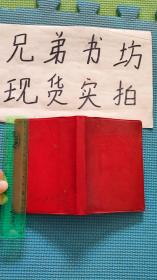 兄弟书坊
现货实拍